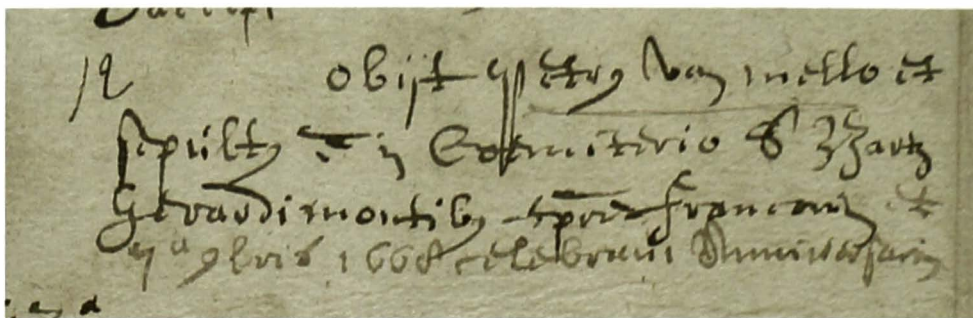 12 obijt Petrus van mello et
sepultus e in Coemiterio S Bartz
Gerardimontibus tpore francorum et
7a 9bris 1668 celebravi Anniversarium